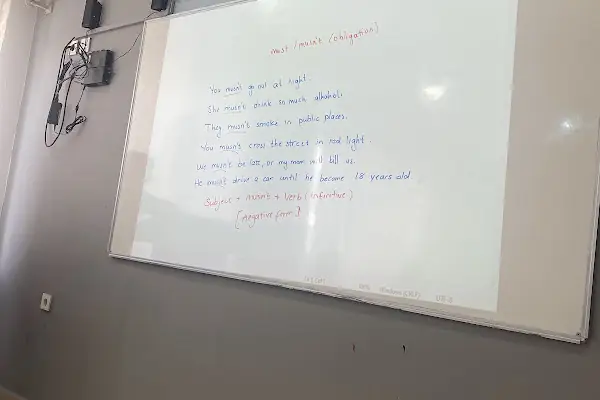 must / musn't (obligation)
You musn't go out at night.
She musn't drink so much alkahol.
They musn't smoke in public places.
You musn't cross the street in red light.
We musn't be late, or my mom will kill us.
He musn't drive a car until he become 18 years old.
Subject + musn't + verb (infinitive)
[negative form]
Windows (CRLF) UTF-8